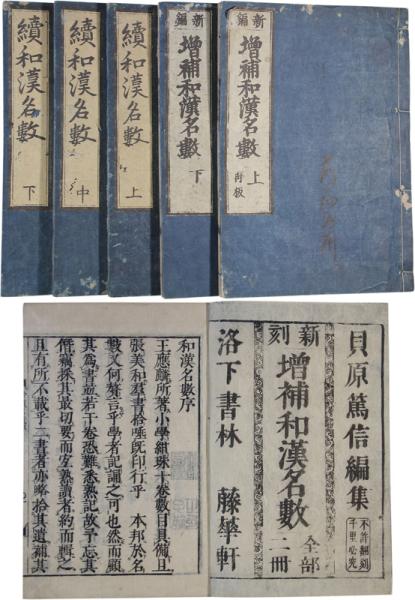 新編
增補和漢名數 上
新編
增補和漢名數 下
續和漢名數 上
續和漢名數 中
續和漢名數 下
貝原篤信編集
不許翻刻
千里必究
新刻 增補和漢名數 全部二冊
洛下書林 藤華軒
和漢名數序
王應麟所著小學紺珠十卷數目具備且
張美和羣書拾唾既印行乎 本邦於名
數又何贅言乎學者記誦之可也然而顧
其為書並若干卷恐難悉熟記故予忘其
僭竊採其最切要而易熟讀者約而輯之
且有所不載乎二書者亦略拾其遺補其